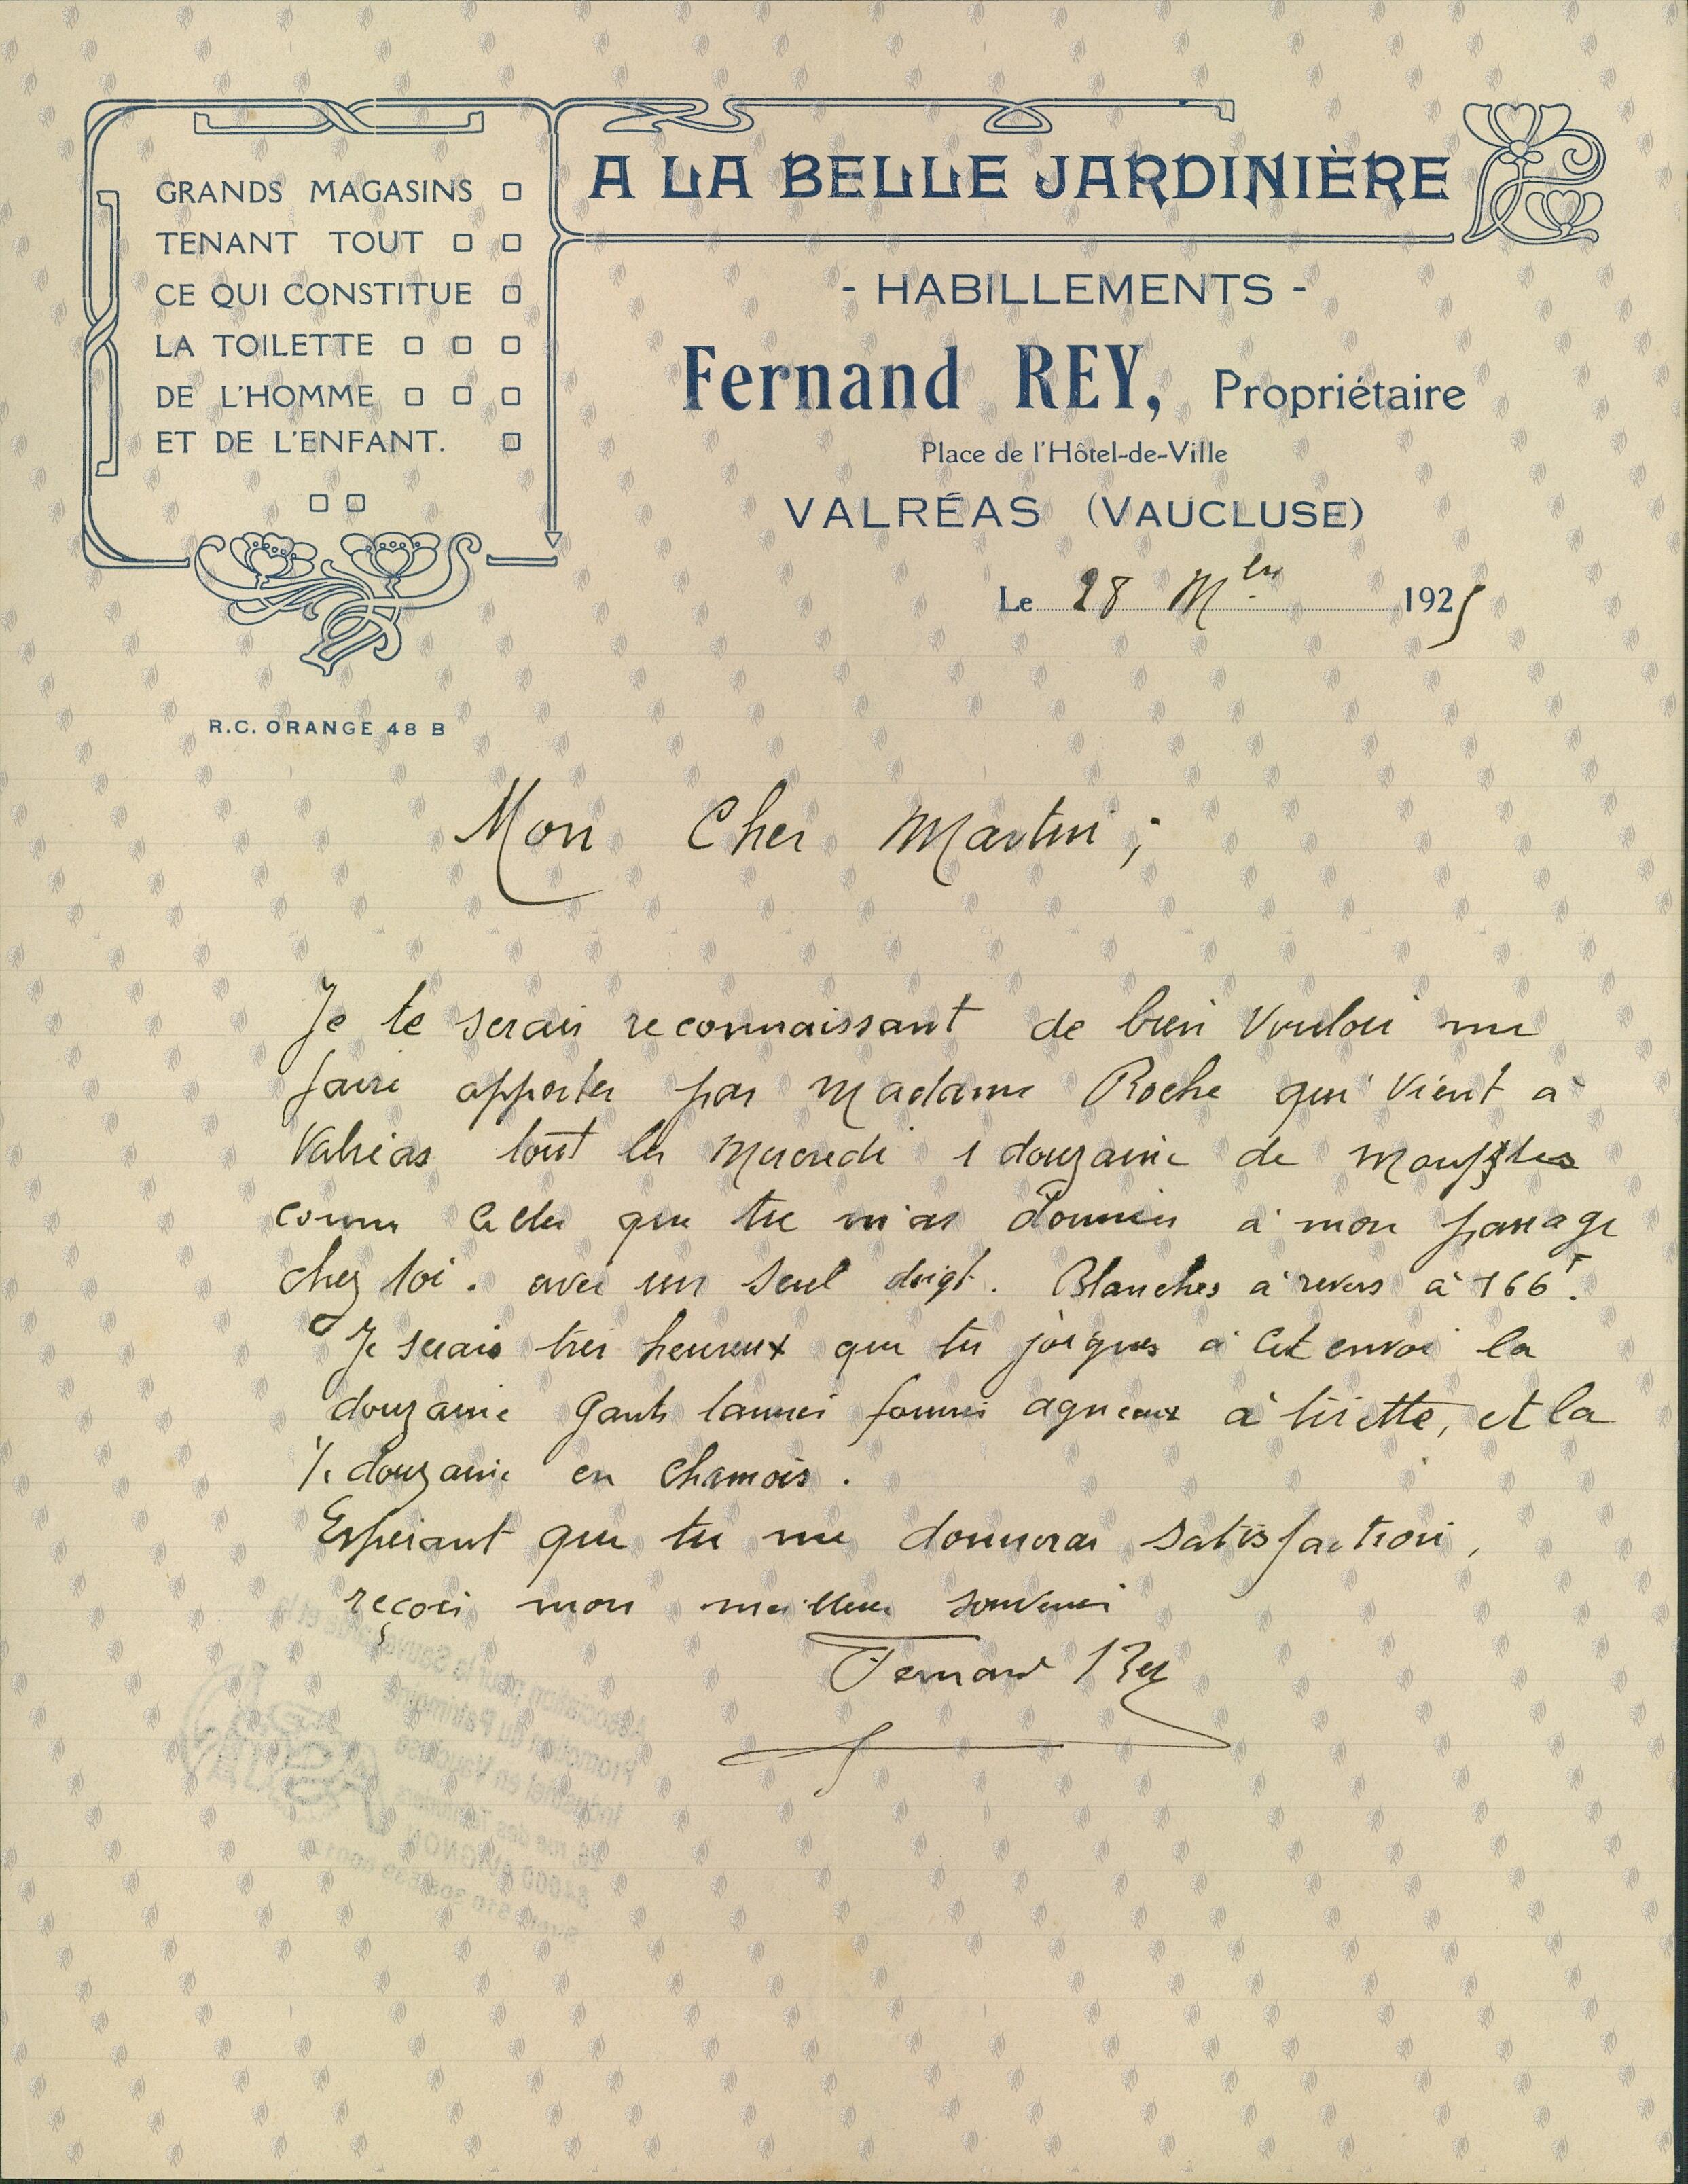 GRANDS MAGASINS
TENANT TOUT
CE QUI CONSTITUE
LA TOILETTE
DE L'HOMME
ET DE L'ENFANT.
A LA BELLE JARDINIÈRE
- HABILLEMENTS -
Fernand REY, Propriétaire
Place de l'Hôtel-de-Ville
VALRÉAS (VAUCLUSE)
Le 28 1925
R.C. ORANGE 48 B
Mon Cher Martin ;
Je te serais reconnaissant de bien vouloir me
faire apporter par Madame Roche qui vient à
Valréas tout les Mercredi 1 douzaine de Mouffles
comme celles que tu m'as données à mon passage
chez toi. avec un seul doigt. Blanches à revers à 166F.
Je serais très heureux que tu joignes à cet envoi la
douzaine Gants tannés fourrés agneaux à tirette, et la
1/2 douzaine en Chamois.
Espérant que tu me donneras satisfaction,
reçois mon meilleur souvenir
Fernand Rey
Association pour la Sauvegarde et la
Promotion du Patrimoine
Industriel en Vaucluse
26, rue des Teinturiers
84000 AVIGNON
ASPPIV